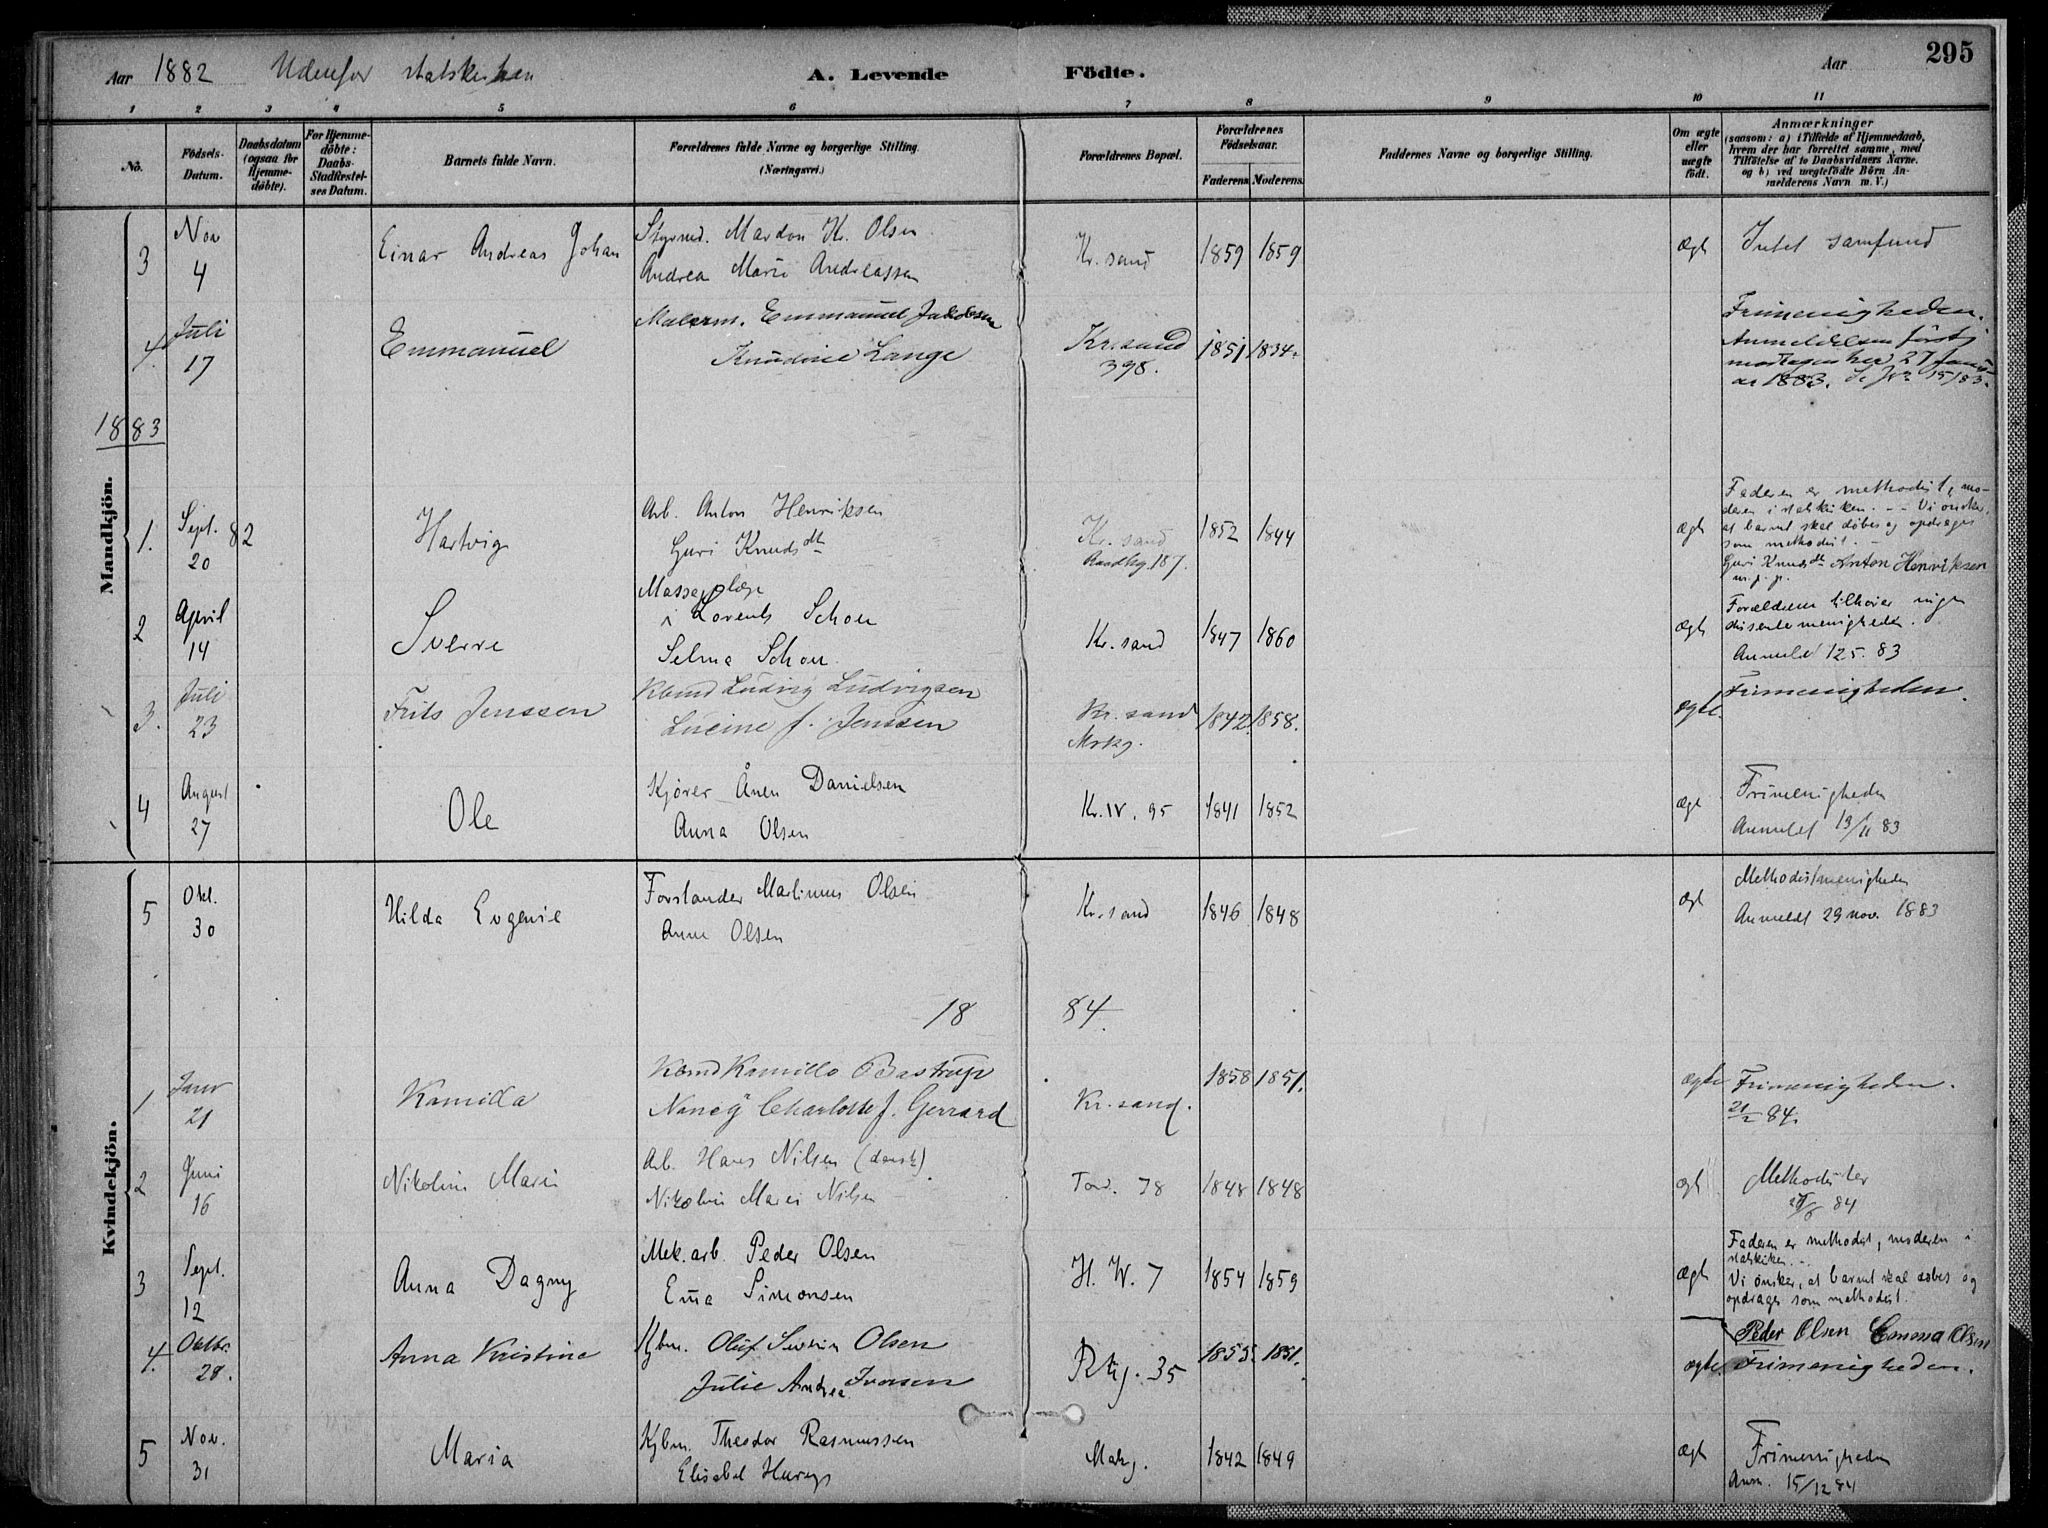 295
Aar 1882 Udenfor statskirken A. Levende Födte. Aar
1 2 3 4 5 6 7 8 9 10 11
No.
Födsels-Datum.
Daabsdatum (ogsaa for Hjemmedöbte).
For Hjemmedöbte: Daabs-Stadfæstelses Datum.
Barnets fulde Navn.
Forældrenes fulde Navne og borgerlige Stilling. (Næringsvei.)
Forældrenes Bopæl.
Forældrenes Födselsaar.
Faderens. Moderens.
Faddernes Navne og borgerlige Stilling.
Om ægte eller uægte født.
Anmærkninger
(saasom: a) i Tilfælde af Hjemmedaab, hvem der har forrettet samme, med Tilföielse af to Daabsvidners Navne. og b) ved uægtefödte Börn Anmelderens Navn m. V.)
Mandkjön.
3 Nov 4 Einar Andreas Johan Styrmd. Mardon Kr. Olsen Kr. sand 1859 1859 ægt Intet samfund
Andrea Marie Andreassen
4. Juli 17 Emmanuel Malerm. Emmanuel Jakobsen Kr.sand 398. 1851 1834. Frimenigheden.
Knudine Lange
Anmeldelsen først modtagen her 27 Januar 1883. Se Jr. 15/83.
1883
1. Sept. 82 20 Hartvig Arb. Anton Henriksen Kr. sand 187. 1852 1844 ægt
Guri Knudsdtt
Faderen er methodist, moderen i statskirken. -- Vi ønsker, at barnet skal døbes og opdrages som methodist. -
Guri Knudsdtt Anton Henriksen
m. p. p.
2 April 14 Sverre Massør Lorents Schou Kr. sand 1847 1860 ægt
Selma Schou.
Forældrene tilhører ingen dissentermenigheder.
Anmeldt 12 5. 83
3. Juli 23 Frits Jenssen Kbmd Ludvig Ludvigsen Kr. sand 1842. 1858. ægte. Frimenigheden.
Lucine f. Jenssen
4 August 27 Ole Kjører Ånen Danielsen Kr. IV. 95 1841 1852 ægt Frimenigheden
Anna Olsen Anmeldt 13/11 83
Kvindekjön.
5 Okt. 30 Hilda Evgenie Forstander Martinus Olsen Kr. sand 1846 1848 ægt Methodistmenigheden
Anne Olsen Anmeldt 29 nov. 1883
1884.
1 Janr 21 Kamilla Kbmd Kamillo Bastrup Kr. sand. 1858 1851. ægte Frimenigheden.
Nancy Charlotte f. Gerrard 21/2 84.
2 Juni 16 Nikoline Marie Arb. Hans Nilsen (dansk) Tord. 78 1848 1848 ægt Methodister
Nikoline Marie Nilsen
3 Sept. 12 Anna Dagny Mek. arb. Peder Olsen H. W. 7 1854 1859 ægt
Ema Simonsen
Faderen er methodist, moderen i statskirken. -
Vi ønsker, at barnet skal døbes og opdrages som methodist.
Peder Olsen Emma Olsen
4. Oktbr. 28. Anna Kristine Kjbm. Oluf Severin Olsen Rkg. 35 1855. 1851. ægte. Frimenigheden.
Julie Andrea Iversen
5 Nov. 31 Maria Kjbm. Theodor Rasmussen 1842 1849 ægt Frimenigheden
Elisabet Anm. 15/12 84